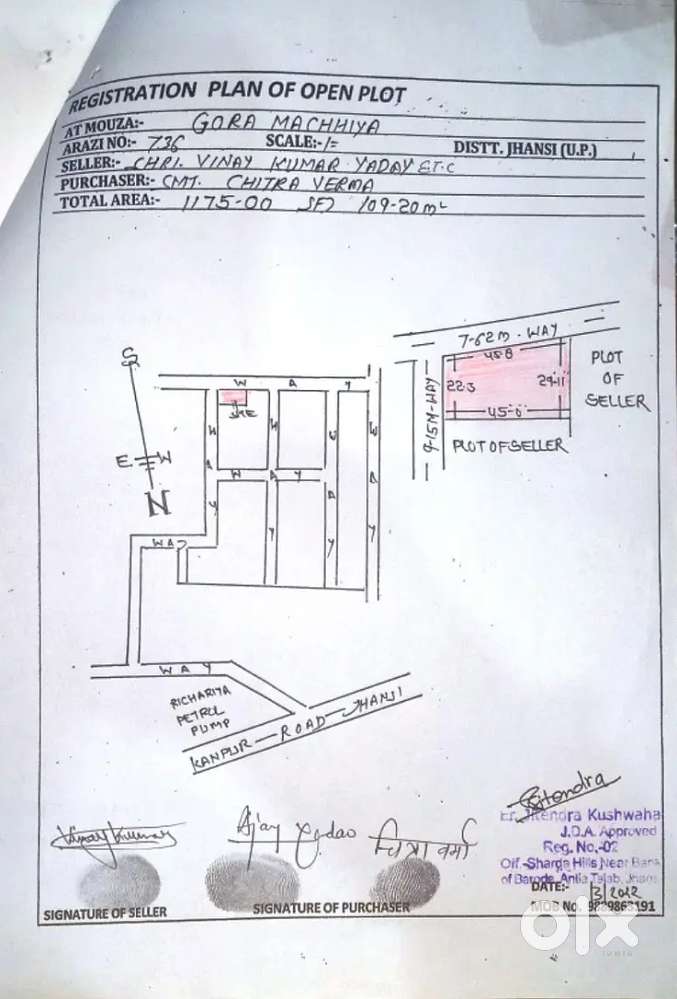 REGISTRATION PLAN OF OPEN PLOT
AT MOUZA:- GORA MACHHIYA
ARAZI NO:- 736 SCALE:-/= DISTT. JHANSI (U.P.)
SELLER:- CHRI. VINAY KUMAR YADAV ET.C
PURCHASER:- CMT. CHITRA VERMA
TOTAL AREA:- 1175-00 SFT 109-20 m²
7-62 M - WAY
45.8
22.3
29-11
45-0
9-15 M-WAY
PLOT
OF
SELLER
PLOT OF SELLER
S
E W
N
WAY
SITE
WAY
WAY
WAY
WAY
WAY
WAY
WAY
RICHARIYA
PETROL
PUMP
KANPUR — ROAD — JHANSI
Jitendra
Er. Jitendra Kushwaha
J.D.A. Approved
Reg. No.-02
Off.-Sharga Hills Near Bank
of Baroda, Antia Talab, Jhansi
DATE:- /3/2022
MOB No. 9839863191
Vinay Kumar
Ajay Yadav
चित्रा वर्मा
SIGNATURE OF SELLER
SIGNATURE OF PURCHASER
olx